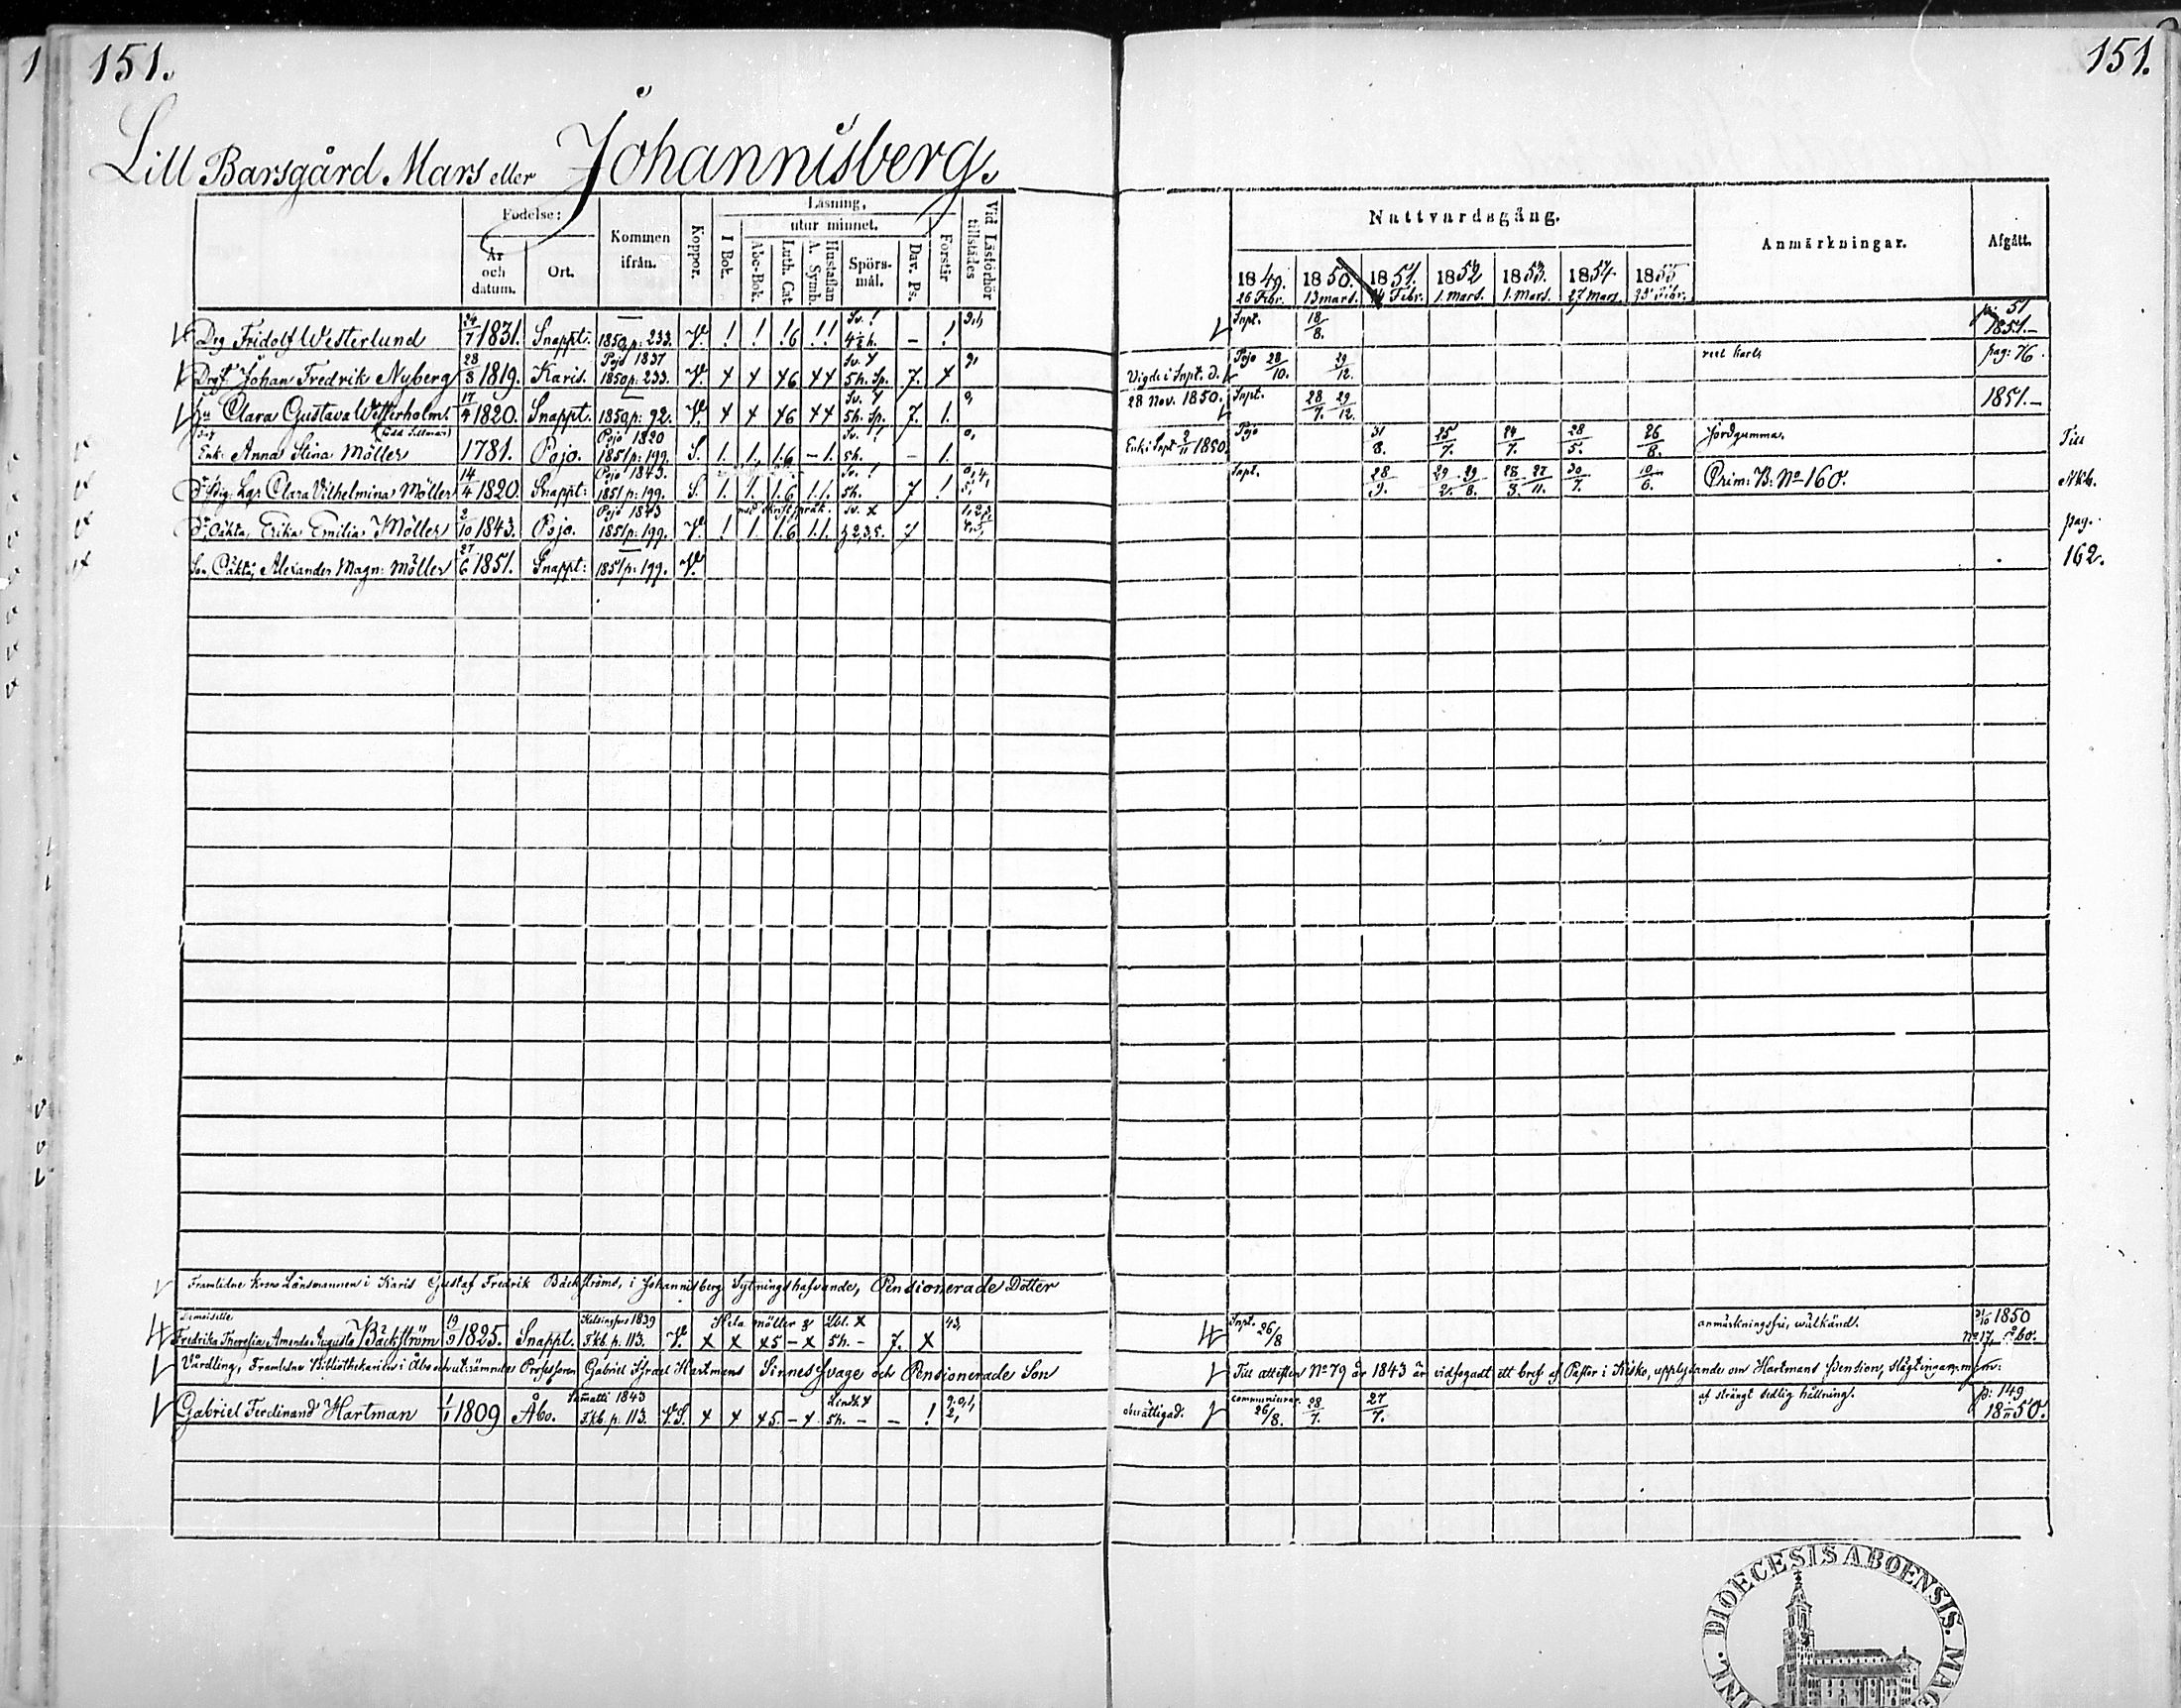 151.
151.
Lill Barsgård Mars eller Johannisberg.
Födelse: Kommen ifrån. Koppor. Läsning, Vid Läsförhör tillstädes
År och datum. Ort. I Bok. utur minnet. Förstår
Abc-Bok. Luth. Cat. A. Symb. Hustaflan Spörs-mål. Dav. Ps.
Nattvardsgång. Anmärkningar. Afgått.
1849. 1850. 1851. 1852 1853. 1854 1855
26 Febr. 13 mars. 14 Febr. 1. Mars. 1. Mars. 27 Mars 23 Febr.
Drg Fridolf Westerlund 24/7 1831. Snappt. 1850 p: 233. V. ! ! !6 !! Sv. ! 4½ h. – ! Snpt. 18/8. p: 51 1851.–
Drgf Johan Fredrik Nyberg 28/8 1819. Karis. Pojo 1837 1850 p: 233. V. x x x6 xx Sv. x 5h. Sp. 7. x Vigde i Snpt. d. Pojo 28/10. 29/12. rest Karls pag: 76.
Clara Gustava Westerholm. 17/4 1820. Snappt. 1850 p: 92. V. x x x6 xx Sv. x 5h. Sp. 7. 1. 28 Nov. 1850. Snpt. 28/7. 29/12. 1851.–
Enk: Anna Stina Möller 1781. Pojo. Pojo 1820 1851 p: 199. S. 1. 1. 1.6 – 1. Sv. ! 5h. – 1. Enk: Snpt 2/11 1850. Pojo 31/8. 25/7. 24/7. 28/5. 26/8. Jordgumma. Till
Clara Vilhelmina Möller 14/4 1820. Snappt: Pojo 1843. 1851 p: 199. S. 1. 1. 1.6 1.1. Sv. ! 5h. 7 ! Snpt. 28/9. 29/2. 29/8. 28/3. 27/11. 30/7. 10/6. Prim: B: No 160.
Oäkta, Erika Emilia Möller 2/10 1843. Pojo. Pojo 1843 1851 p: 199. V. ! 1. 1.6 1.1. Sv. x 7 pag.
So. Oäkta, Alexander Magn: Möller 27/6 1851. Snappt: 1851 p: 199. V. 162.
Framlidne Krono Länsmannen i Karis Gustaf Fredrik Bäckströms, i Johannisberg Sytningshafvande, Pensionerade Dotter
Demoiselle Helsingfors 1839 anmärkningsfri, wälkänd. 1850
Fredrika Theresia Amanda Augusta Bäckström 19/9 1825. Snappt. Fkb. p. 113. V. x x x5 – x 5h. – 7. x Snpt. 26/8 No 17,
Vårdling, Framlidne Bibliothekarien i Åbo och utnämndes Professoren Gabriel Israel Hartmans Sinnes svage och Pensionerade Son Till attesten No 79 år 1843 är vidfogadt ett bref af Pastor i Kisko, upplysande om Hartmans Pension, slägtingar, m.m:
Gabriel Ferdinand Hartman 1/1 1809 Åbo. 1843 Fkb. p. 113. V.S. x x x5. – x. 5h. – – ! communicerar. 26/8. 28/7. 27/7. af strängt sedlig hållning. p: 149 1850.
DIOECESIS ABOENSIS.